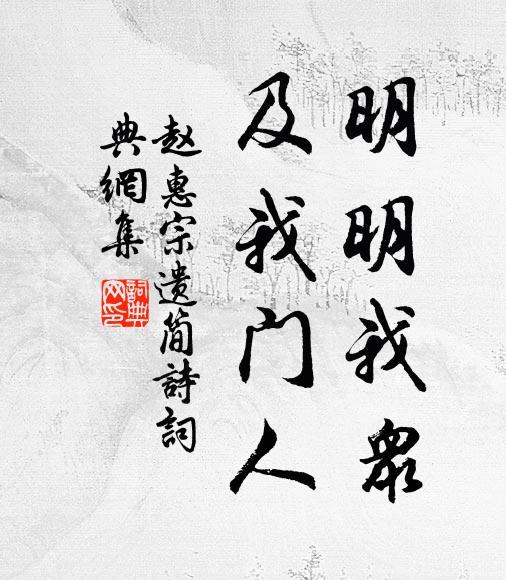 明明我眾
及我门人
赵惠宗遗简詩詞
典網集
詞典
网印